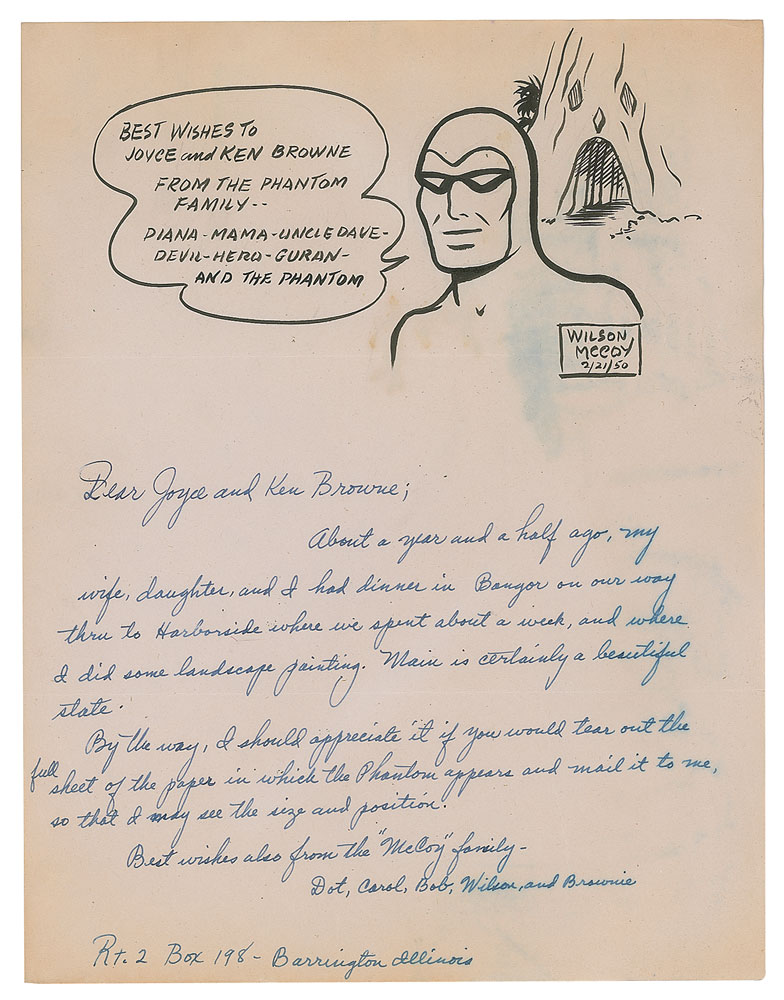 BEST WISHES TO
JOYCE and KEN BROWNE
FROM THE PHANTOM
FAMILY--
DIANA-MAMA-UNCLE DAVE-
DEVIL-HERO-GURAN-
AND THE PHANTOM
WILSON
McCOY
2/21/50
Dear Joyce and Ken Browne;
About a year and a half ago, my
wife, daughter, and I had dinner in Bangor on our way
thru to Harborside where we spent about a week, and where
I did some landscape painting. Main is certainly a beautiful
state.
By the way, I should appreciate it if you would tear out the
full sheet of the paper in which the Phantom appears and mail it to me,
so that I may see the size and position.
Best wishes also from the "McCoy" family-
Dot, Carol, Bob, Wilson, and Brownie
Rt. 2 Box 198- Barrington Illinois